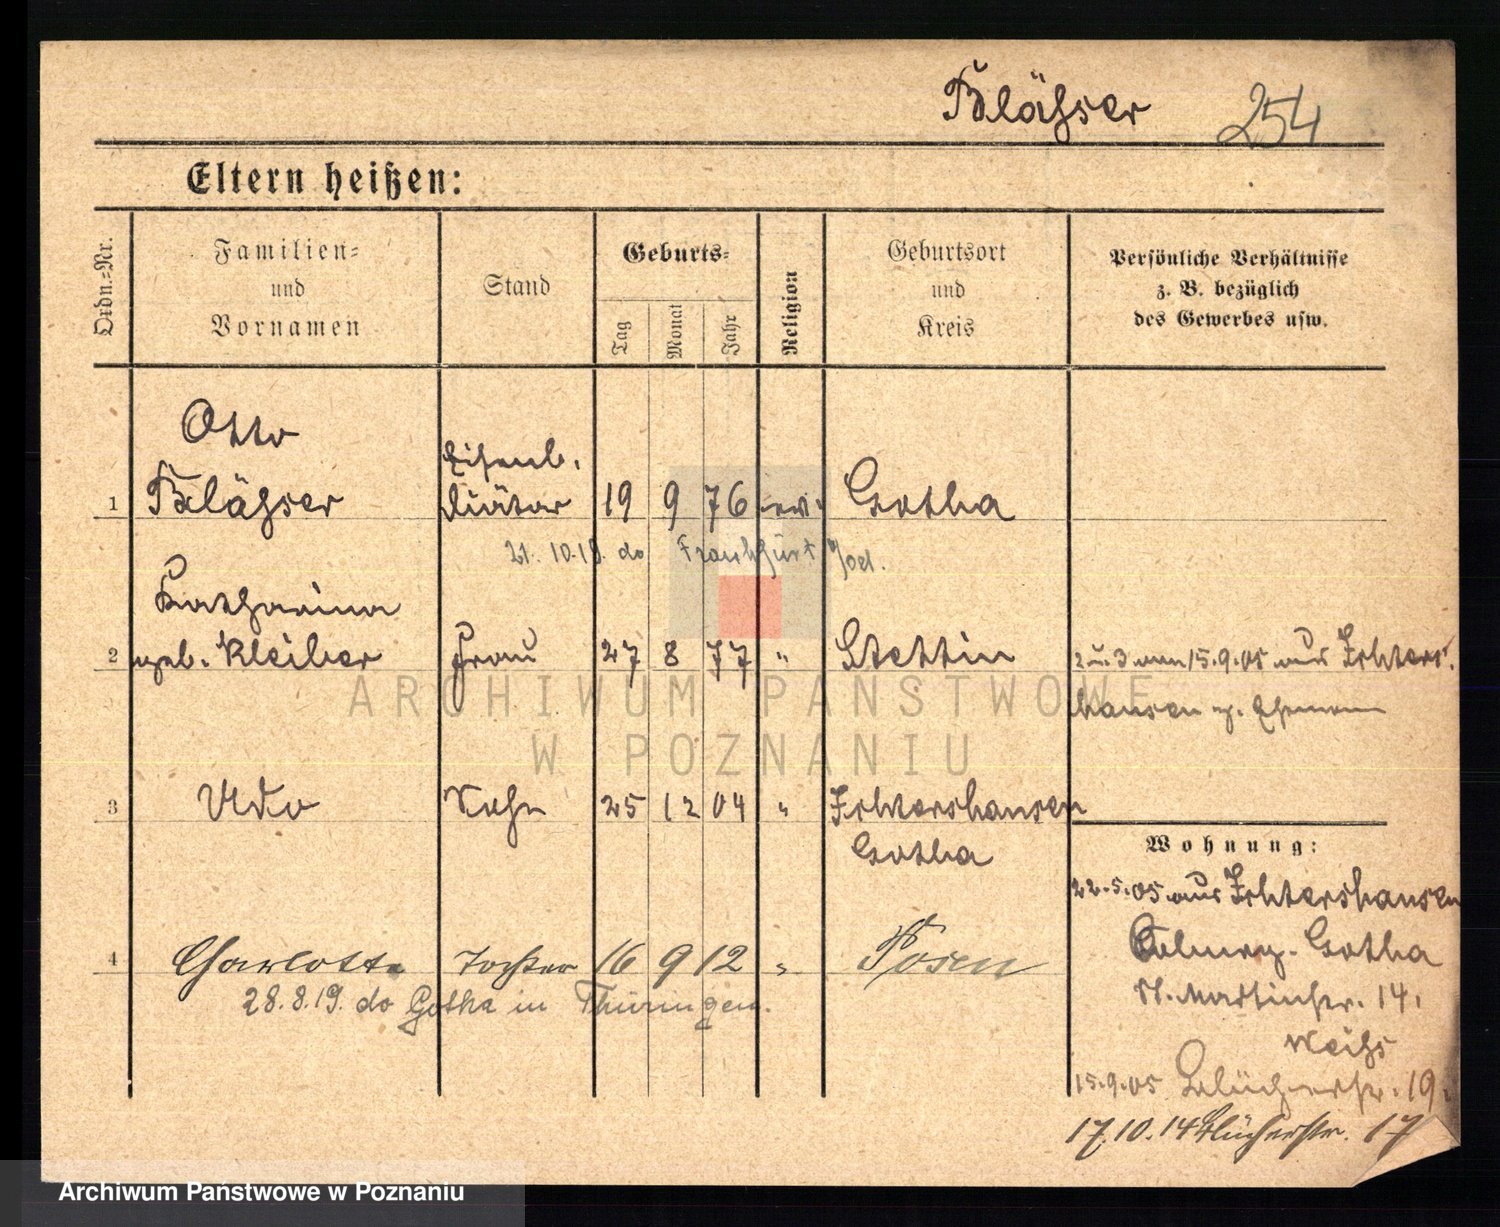 Blähser 254
Eltern heißen:
Ordn.-Nr.
Familien-
und
Vornamen
Stand
Geburts-
Tag
Monat
Jahr
Religion
Geburtsort
und
Kreis
Persönliche Verhältnisse
z. B. bezüglich
des Gewerbes usw.
Otto
Eisenb.
1 Blähser Diätar 19 9 76 ev. Gotha
21. 10.19. do Frankfurt a/od.
Katharina
2 geb. Kleiber Frau 27 8 77 " Stettin
2 u. 3 am 15.9.05 aus Ichters-
hausen z. Ehemann
3 Udo Sohn 25 12 04 " Ichtershausen
Gotha
4 Charlotte Tochter 16 9 12 " Posen
28.8.19. do Gotha in Thüringen.
Wohnung:
22.5.05 aus Ichtershausen
Gotha
St. Martinstr. 14.
15.9.05 Blücherstr. 19.
17.10.14 Blücherstr. 17
ARCHIWUM PAŃSTWOWE
W POZNANIU
Archiwum Państwowe w Poznaniu